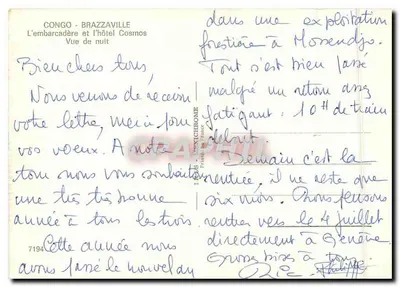 CONGO - BRAZZAVILLE
L'embarcadère et l'hôtel Cosmos
Vue de nuit
Bien chers tous,
Nous venons de recevoir
votre lettre, merci pour
vos voeux. A notre
tour nous vous souhaitons
une très très bonne
année à tous les trois.
7194
Cette année nous
avons passé le nouvel an
dans une exploitation
forestière à Mossendjo.
Tout s'est bien passé
malgré un retour assez
fatigant : 10H de train
debout.
Demain c'est la
rentrée, il ne reste que
six mois. Nous pensons
rentrer vers le 4 juillet
directement à Genève
Grosses bises à tous